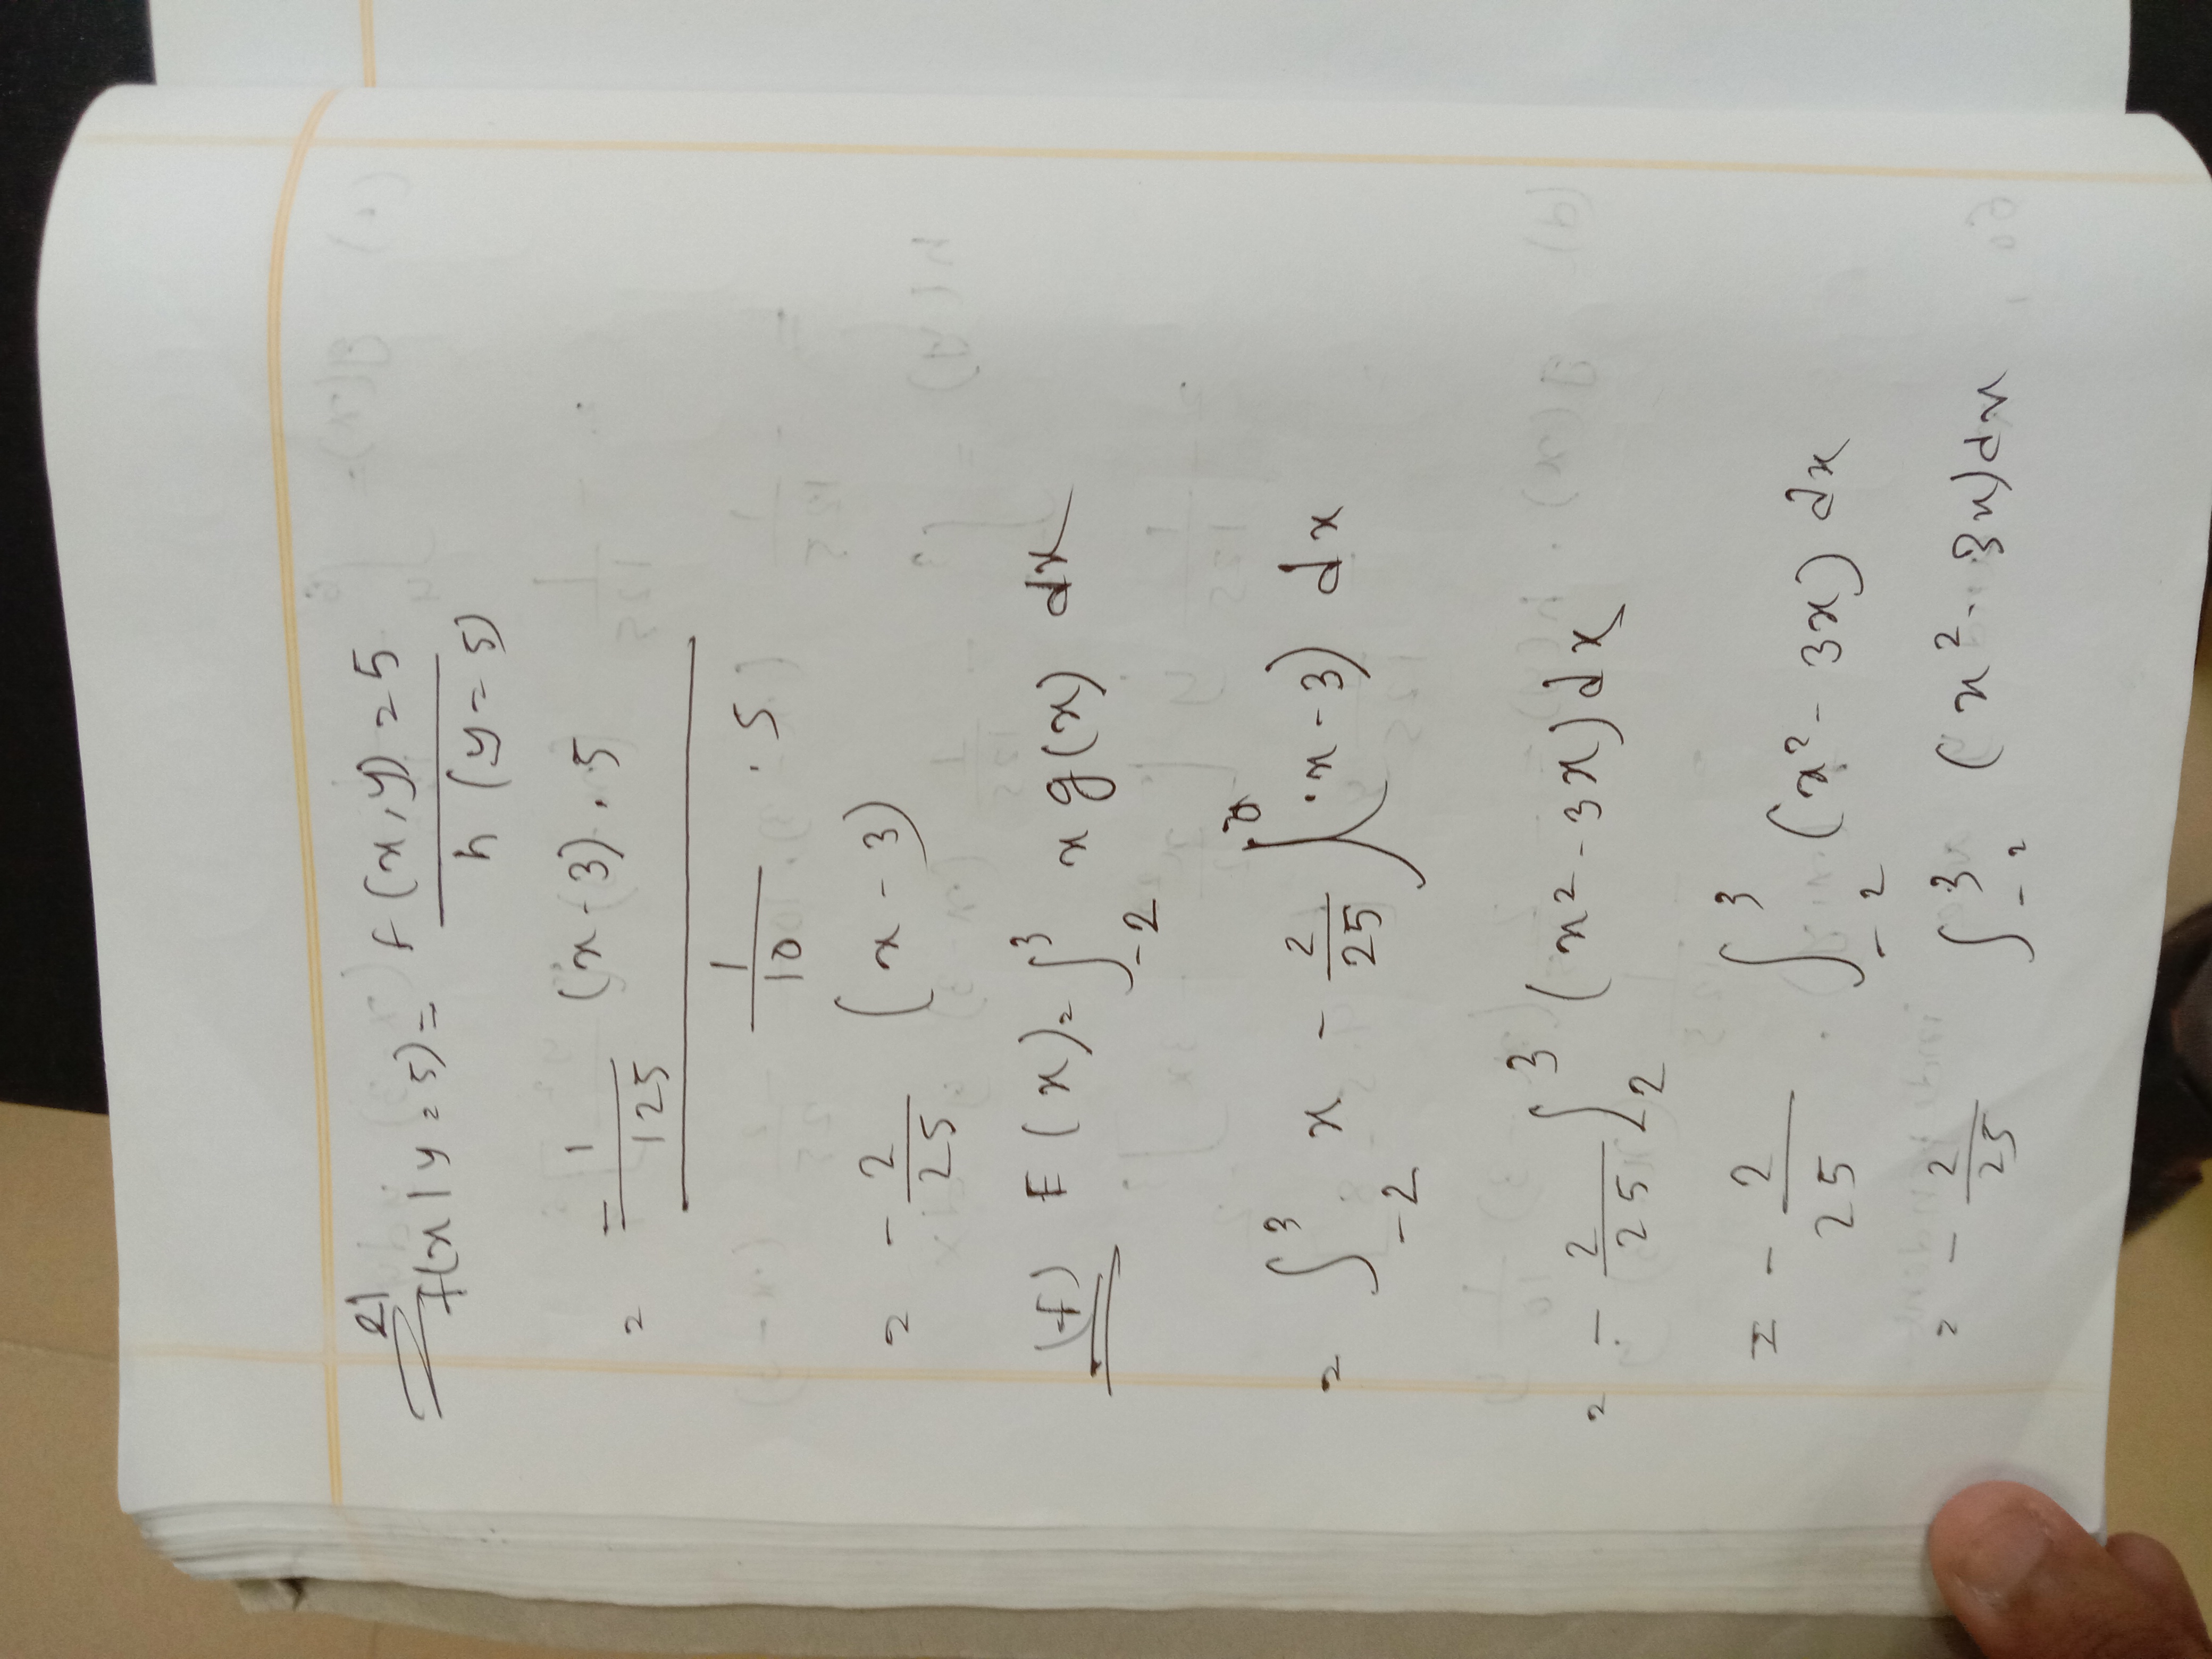 e)
f(x|y=5) = f(x,y)=5 / h(y=5)
= = 1/125 (x-3).5
1/10 . 5
= - 2/25 (x-3)
(f) E(x) = ∫_{-2}^{3} x g(x) dx
= ∫_{-2}^{3} x - 2/25 (x-3) dx
= - 2/25 ∫_{2}^{3} (x² - 3x) dx
= - 2/25 ∫_{-2}^{3} (x² - 3x) dx
= - 2/25 ∫_{-2}^{3} (x² - 3x) dx